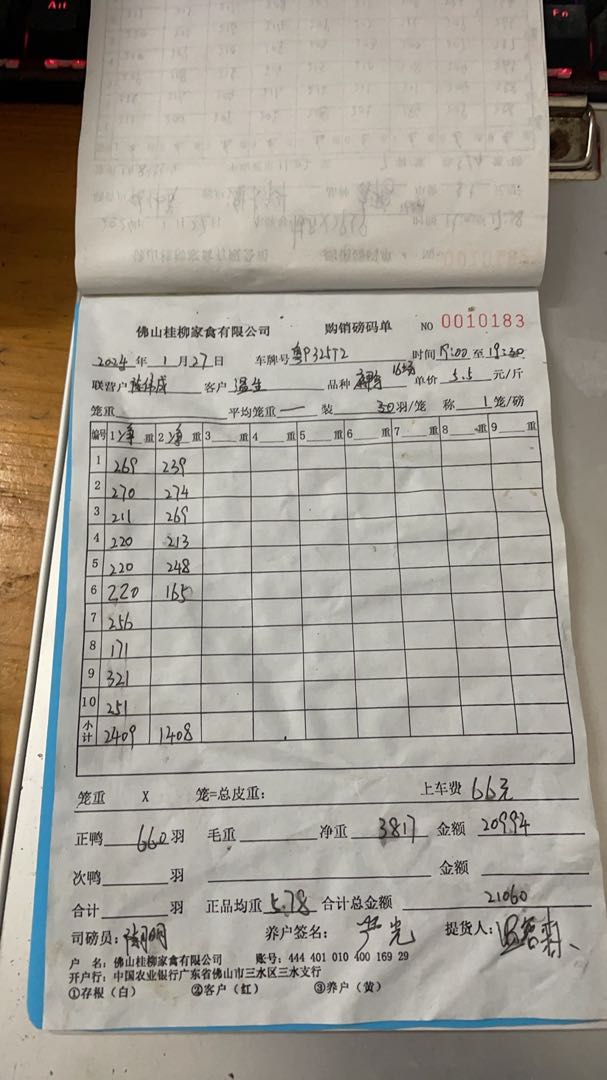 佛山桂柳家禽有限公司 购销磅码单 NO 0010183
2024 年 1 月 27 日 车牌号 粤P325T2 时间 17:00 至 19:30
联营户 客户 温生 品种 单价 5.5 元/斤
笼重 平均笼重 一 装 30 羽/笼 称 1 笼/磅
编号 1 净 重 2 净 重 3 重 4 重 5 重 6 重 7 重 8 重 9 重
1 269 239
2 270 274
3 211 269
4 220 213
5 220 248
6 220 165
7 256
8 171
9 321
10 251
小计 2409 1408
笼重 X 笼=总皮重: 上车费 66元
正鸭 660 羽 毛重 净重 3817 金额 20994
次鸭 羽 金额
合计 羽 正品均重 5.78 合计总金额 21060
司磅员: 养户签名: 提货人:
户 名: 佛山桂柳家禽有限公司 账号: 444 401 010 400 169 29
开户行: 中国农业银行广东省佛山市三水区三水支行
①存根(白) ②客户(红) ③养户(黄)